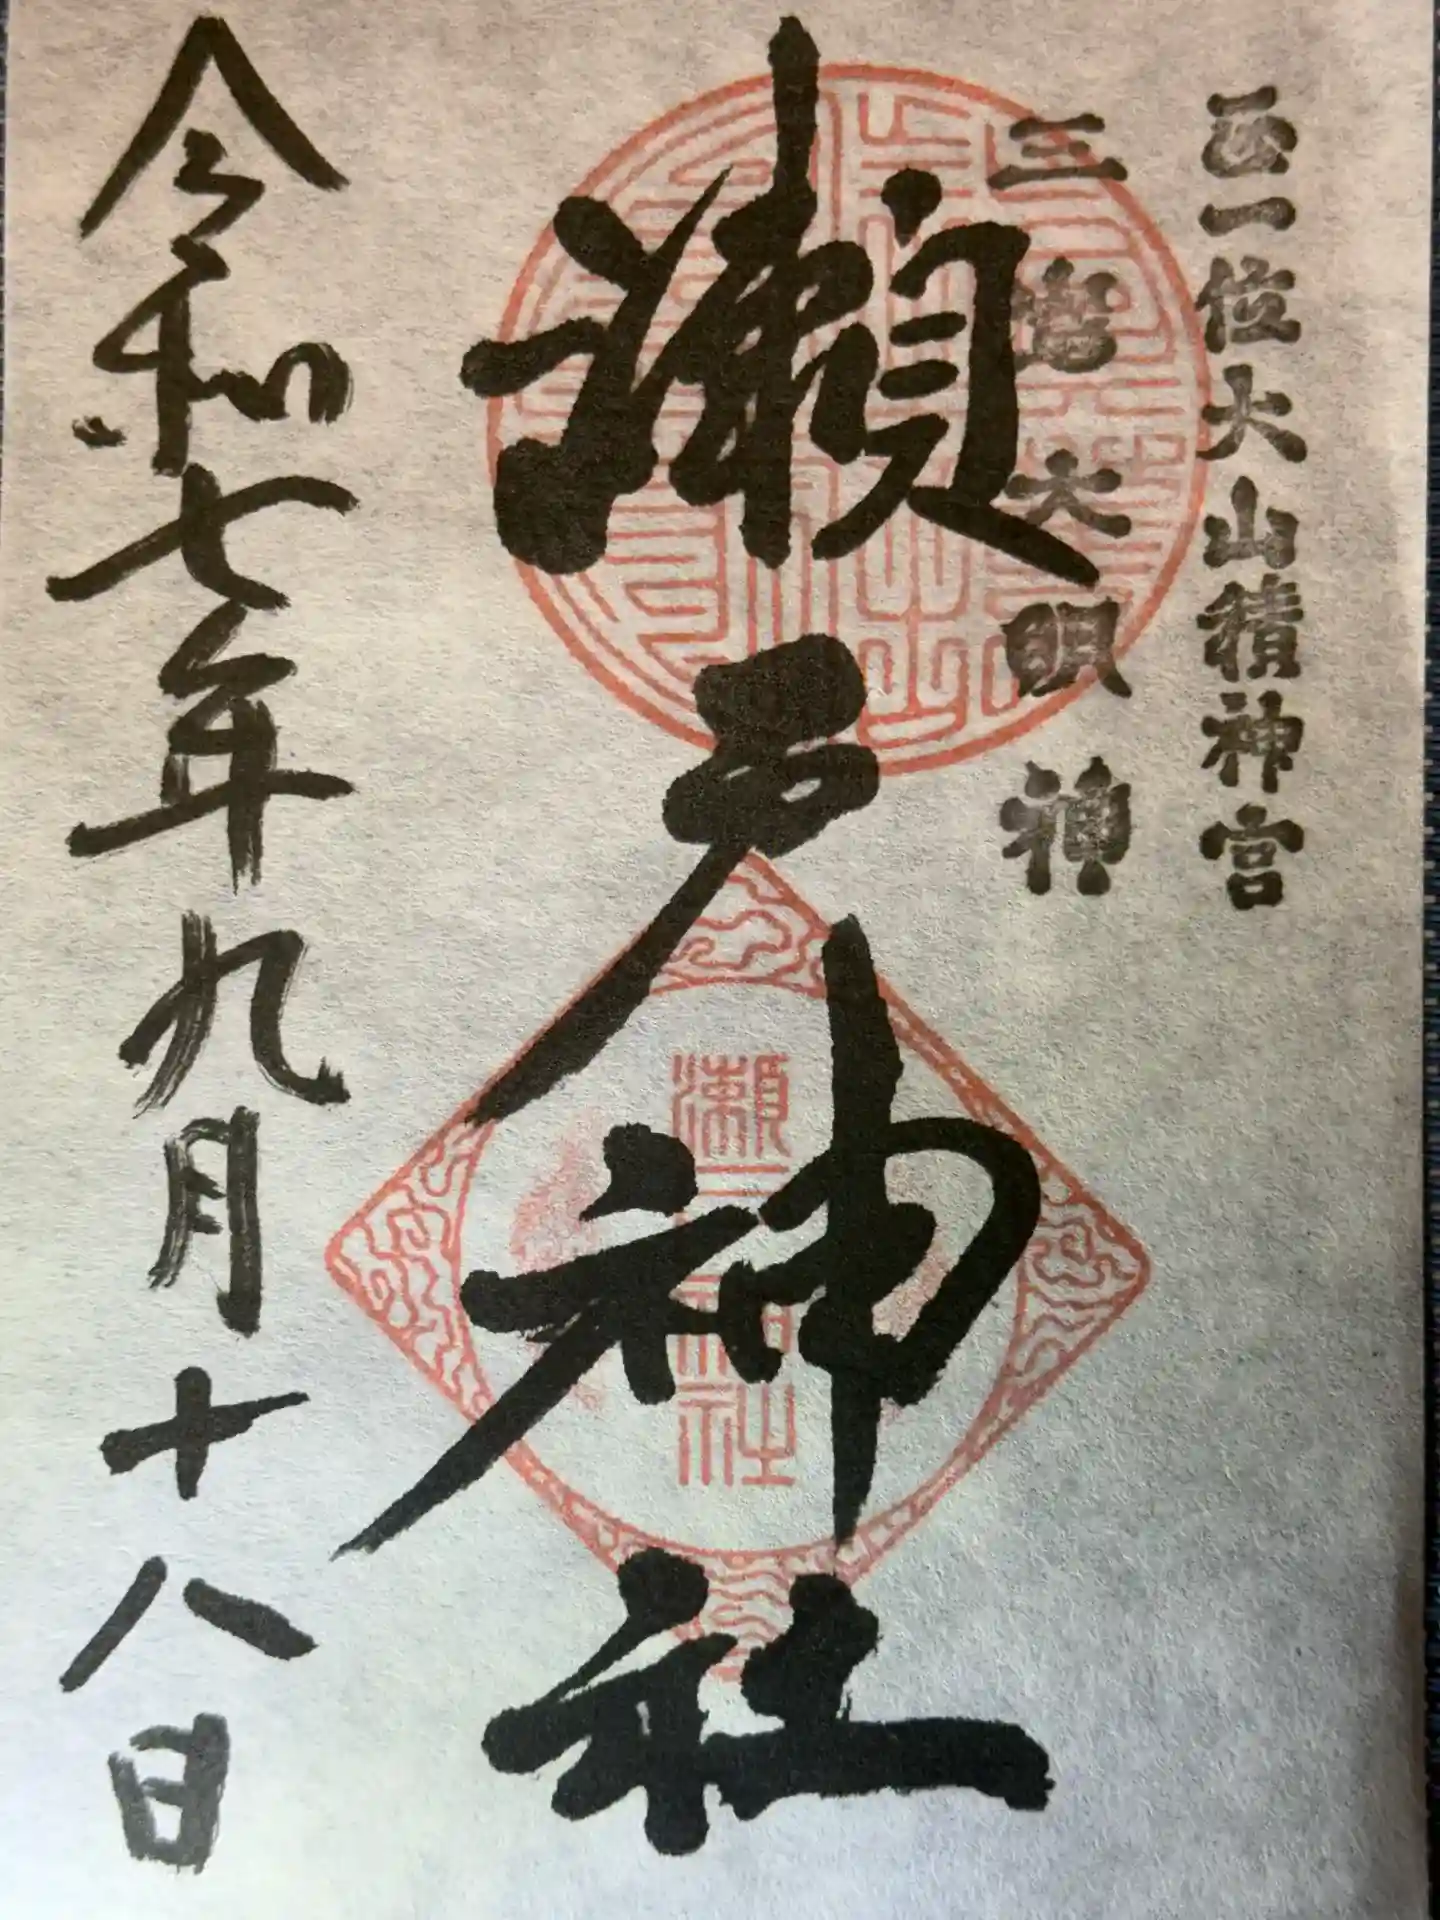 正一位大山積神宮
三島大明神
瀬戸神社
瀬戸神社
令和七年九月十八日